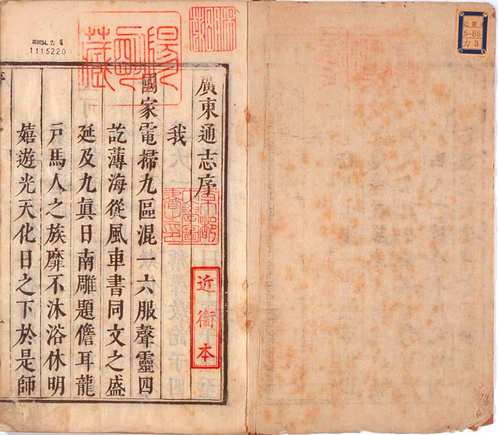 廣東通志序
我
國家電掃九區混一六服聲靈四
訖薄海從風車書同文之盛
延及九真日南雕題儋耳龍
戸馬人之族靡不沐浴休明
嬉遊光天化日之下於是師
近衛本
1115220